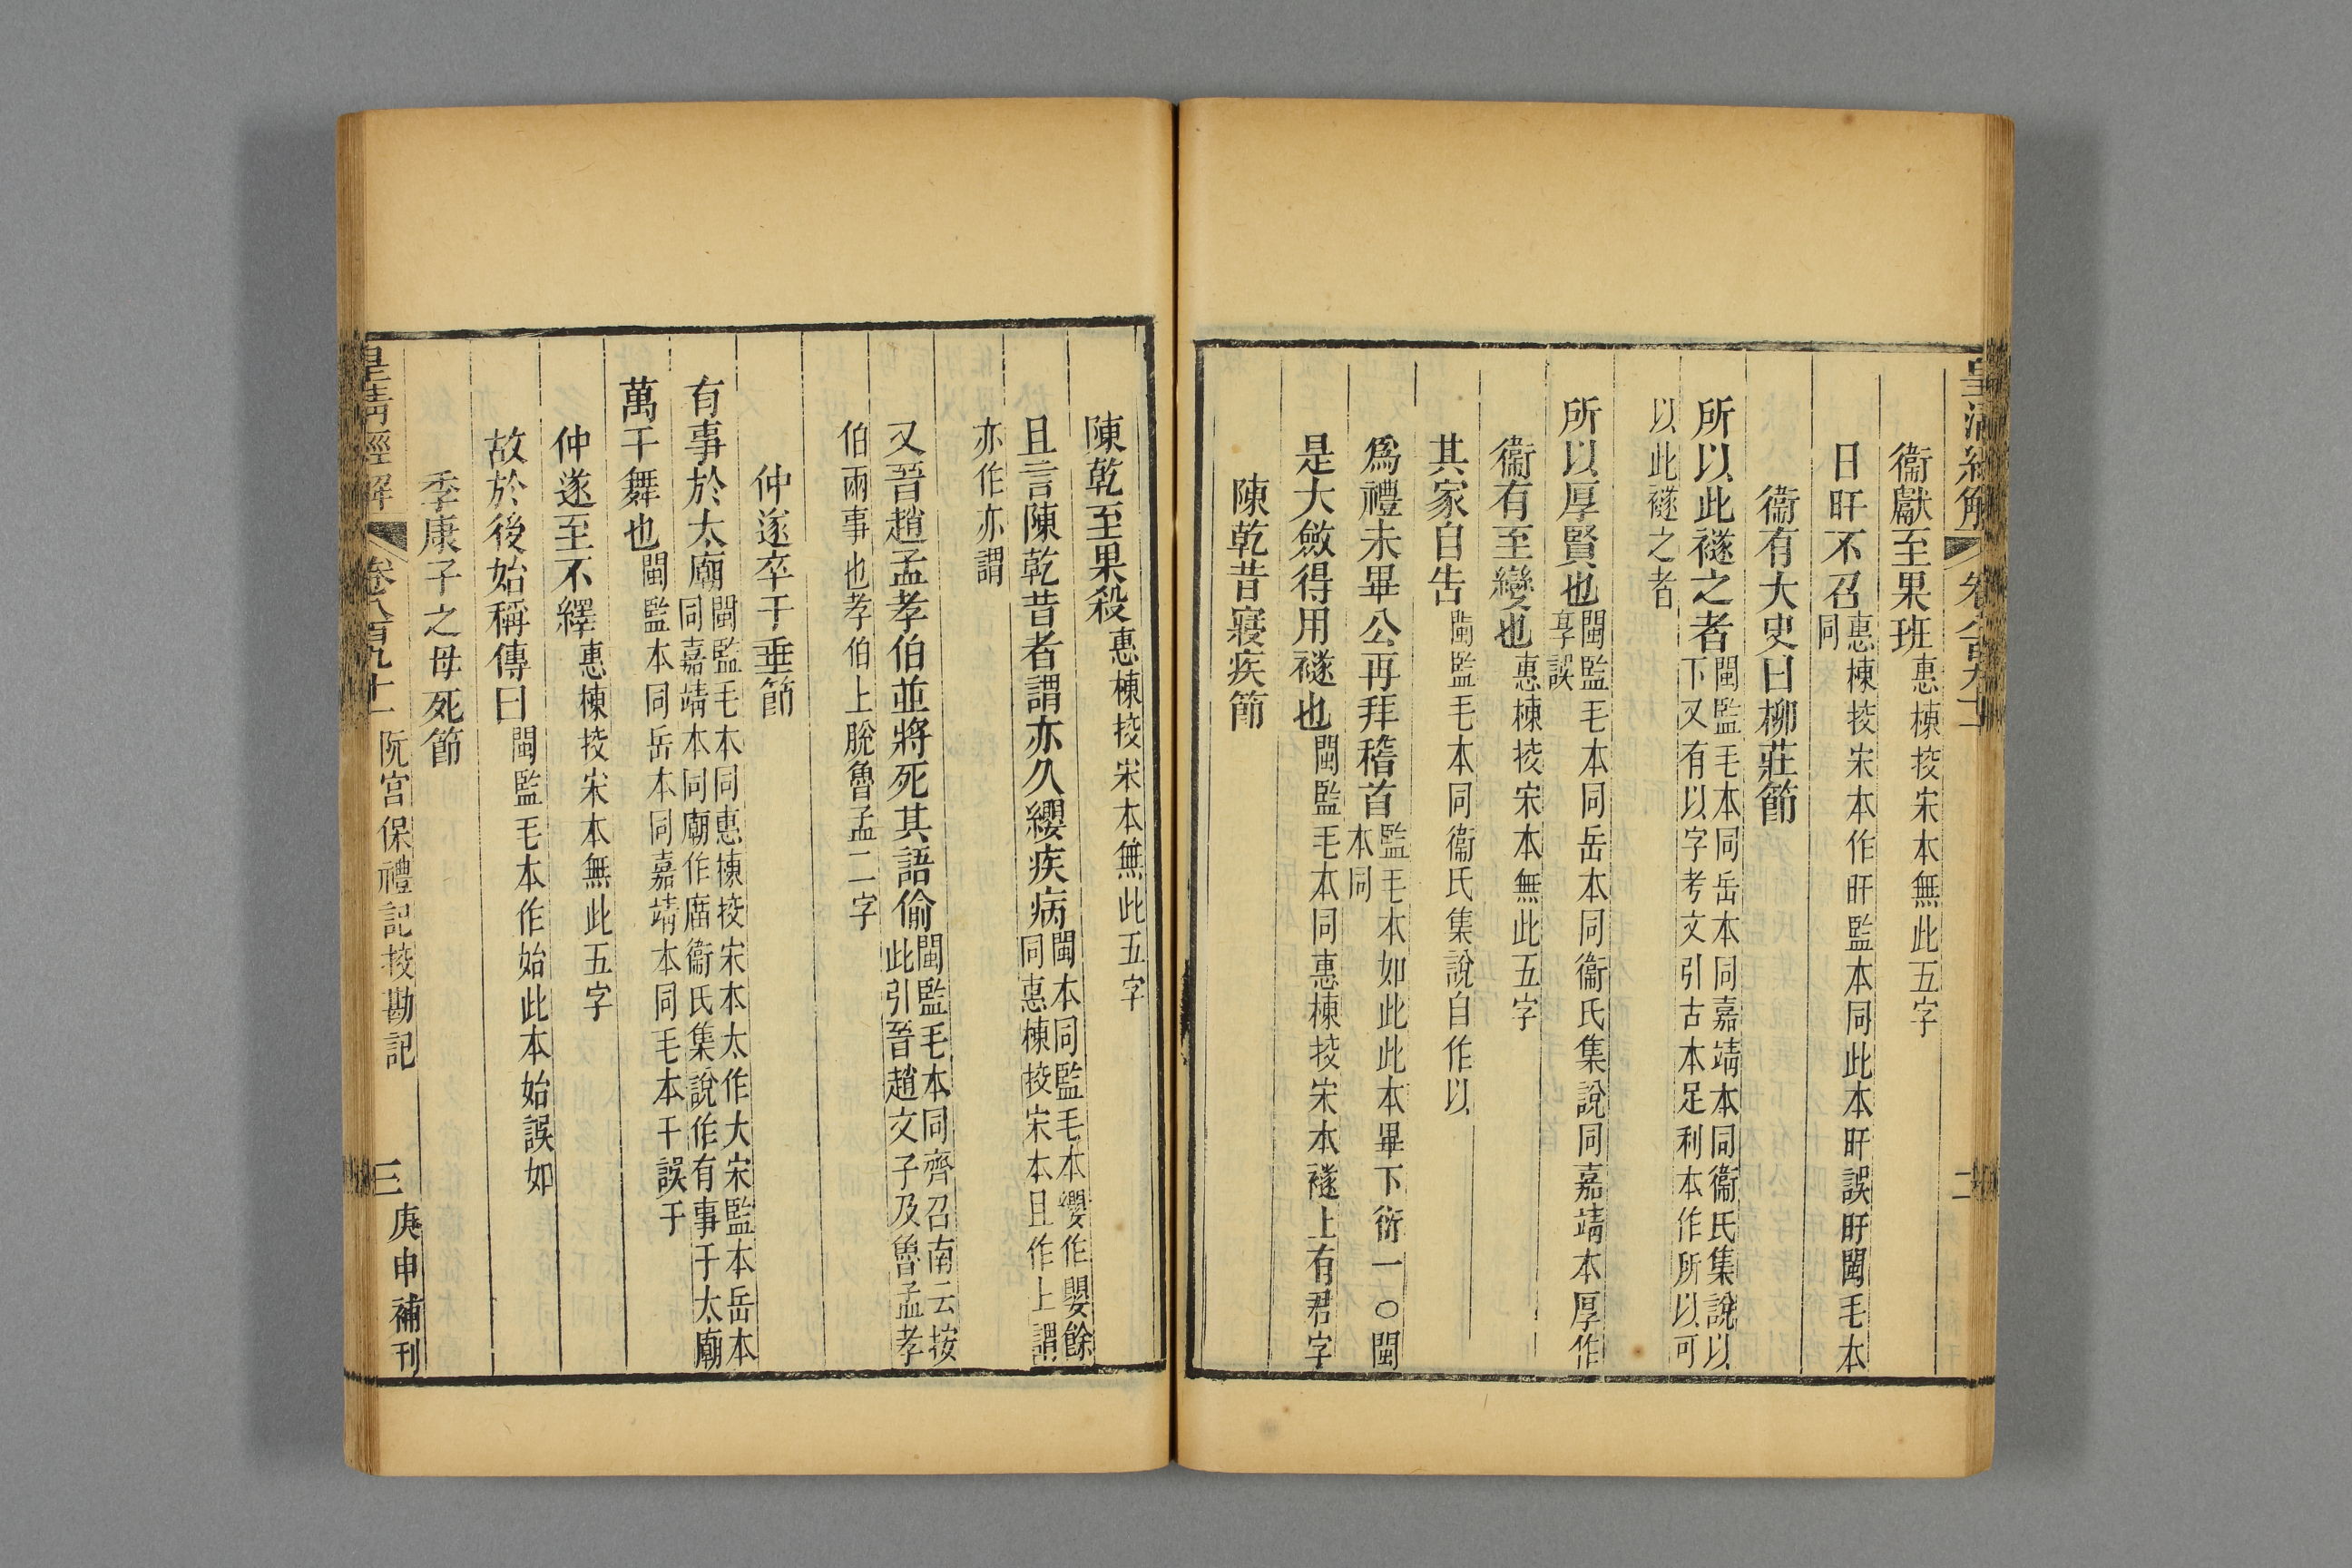 皇清經解 卷八百九十一 二
衞獻至果班惠棟挍宋本無此五字
日旰不召惠棟挍宋本作旰監本同此本旰誤盱閩毛本同
衞有大史曰柳莊節
所以此襚之者閩監毛本同岳本同嘉靖本同衞氏集說以下又有以字考文引古本足利本作所以可
以此襚之者
所以厚賢也閩監毛本同岳本同衞氏集說同嘉靖本厚作享誤
衞有至變也惠棟挍宋本無此五字
其家自告閩監毛本同衞氏集說自作以
爲禮未畢公再拜稽首監毛本如此此本畢下衍一〇閩本同
是大斂得用襚也閩監毛本同惠棟挍宋本襚上有君字
陳乾昔寢疾節
陳乾至果殺惠棟挍宋本無此五字
且言陳乾昔者謂亦久纓疾病閩本同監毛本纓作嬰餘同惠棟挍宋本且作上謂
亦作亦謂
又晉趙孟孝伯並將死其語偷閩監毛本同齊召南云按此引晉趙文子及魯孟孝
伯兩事也孝伯上脫魯孟二字
仲遂卒于垂節
有事於太廟閩監毛本同惠棟挍宋本太作大宋監本岳本同嘉靖本同廟作庿衞氏集說作有事于太廟
萬干舞也閩監本同岳本同嘉靖本同毛本干誤于
仲遂至不繹惠棟挍宋本無此五字
故於後始稱傳曰閩監毛本作始此本始誤如
季康子之母死節
皇清經解 卷八百九十一 阮宮保禮記挍勘記 三 庚申補刊